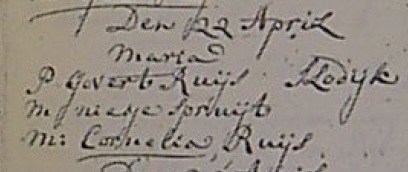 Den 22 April
Maria
P Govert Ruijs Slodijk
M niesje Spruijt
M: Cornelia Ruijs